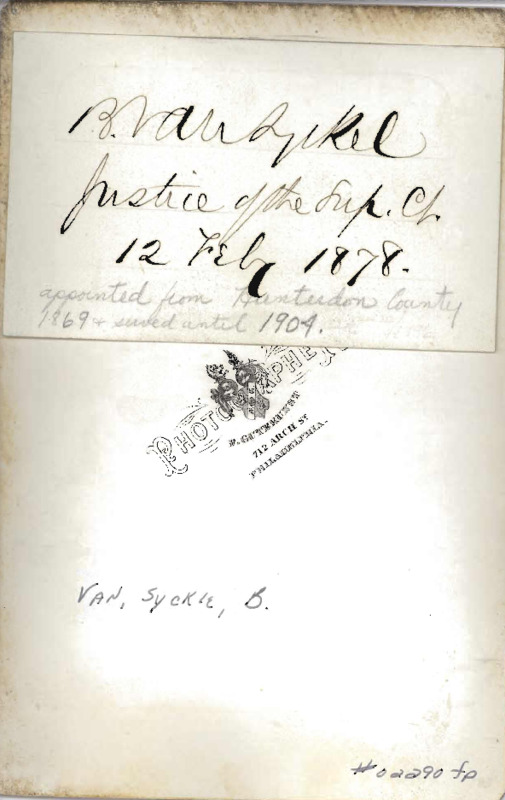 B. Van Syckel
Justice of the Sup. Ct.
12 Feby 1878.
appointed from Hunterdon County
1869 & served until 1904.
PHOTOGRAPHE
F. GUTEKUNST
712 ARCH ST
PHILADELPHIA.
VAN, SYCKLE, B.
#02290 fp